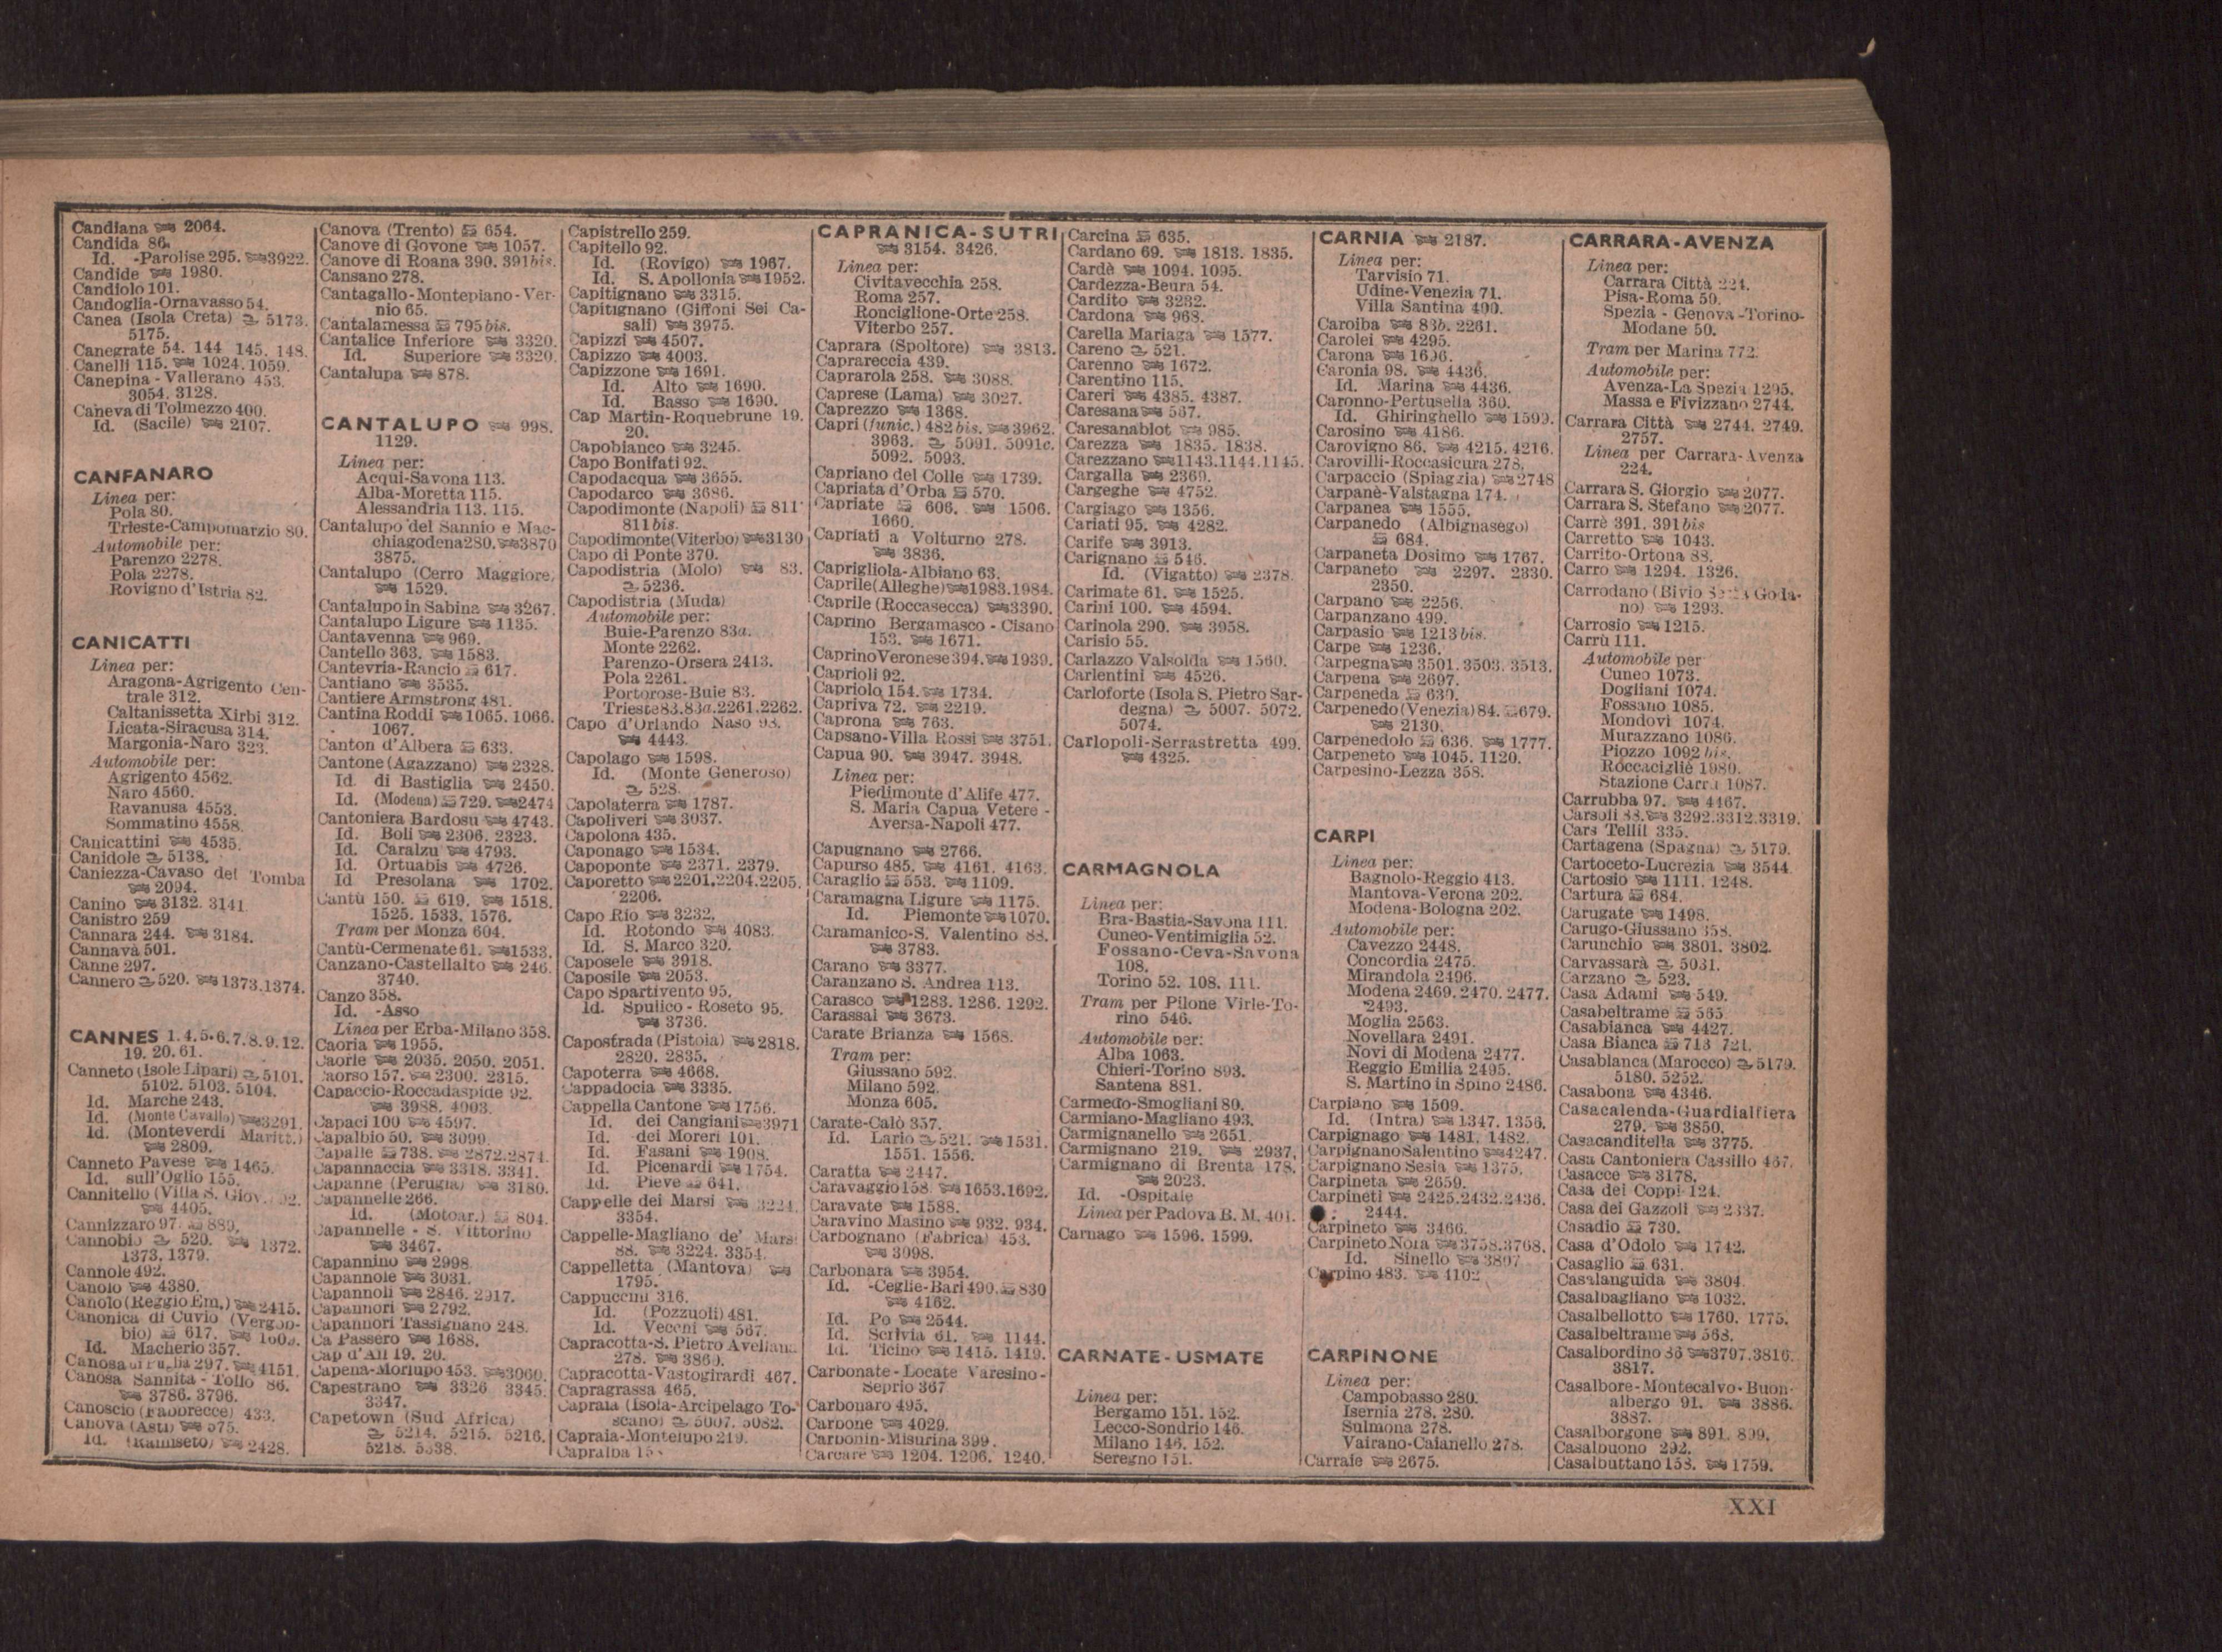 Candiana 2064.
Candida 86.
Id. -Parolise 295. 3922.
Candide 1980.
Candiolo 101.
Candoglia-Ornavasso 54.
Canea (Isola Creta) 5173.
5175.
Canegrate 54. 144 145. 148.
Canelli 115. 1024. 1059.
Canepina - Vallerano 453.
3054. 3128.
Caneva di Tolmezzo 400.
Id. (Sacile) 2107.
CANFANARO
Linea per:
Pola 80.
Trieste-Campomarzio 80.
Automobile per:
Parenzo 2278.
Pola 2278.
Rovigno d'Istria 82.
CANICATTI
Linea per:
Aragona-Agrigento Cen-
trale 312.
Caltanissetta Xirbi 312.
Licata-Siracusa 314.
Margonia-Naro 323.
Automobile per:
Agrigento 4562.
Naro 4560.
Ravanusa 4553.
Sommatino 4558.
Canicattini 4535.
Canidole 5138.
Caniezza-Cavaso del Tomba
2094.
Canino 3132. 3141.
Canistro 259
Cannara 244. 3184.
Cannavà 501.
Canne 297.
Cannero 520. 1373. 1374.
CANNES 1.4.5.6.7.8.9.12.
19. 20. 61.
Canneto (Isole Lipari) 5101.
5102. 5103. 5104.
Id. Marche 243.
Id. (Monte Cavallo) 3291.
Id. (Monteverdi Maritt.)
2809.
Canneto Pavese 1465.
Id. sull'Oglio 155.
Cannitello (Villa S. Giov.
4405.
Cannizzaro 97. 889.
Cannobio 520. 1372.
1373. 1379.
Cannole 492.
Canolo 4380.
Canolo (Reggio Em.) 2415.
Canonica di Cuvio (Vergob-
bio) 617.
Id. Macherio 357.
Canosa di Puglia 297. 4151.
Canosa Sannita - Tollo 86.
3786. 3796.
Canoscio (Fabbrecce) 433.
Canova (Asti) 575.
Id. (Ramiseto) 2428.
Canova (Trento) 654.
Canove di Govone 1057.
Canove di Roana 390. 391bis.
Cansano 278.
Cantagallo-Montepiano-Ver-
nio 65.
Cantalamessa 795 bis.
Cantalice Inferiore 3320.
Id. Superiore 3320.
Cantalupa 878.
CANTALUPO 998.
1129.
Linea per:
Acqui-Savona 113.
Alba-Moretta 115.
Alessandria 113. 115.
Cantalupo del Sannio e Mac-
chiagodena 280. 3870
3875.
Cantalupo (Cerro Maggiore)
1529.
Cantalupo in Sabina 3267.
Cantalupo Ligure 1135.
Cantavenna 969.
Cantello 363. 1583.
Cantevria-Rancio 617.
Cantiano 3535.
Cantiere Armstrong 481.
Cantina Roddi 1065. 1066.
1067.
Canton d'Albera 633.
Cantone (Agazzano) 2328.
Id. di Bastiglia 2450.
Id. (Modena) 729. 2474
Cantoniera Bardosu 4743.
Id. Boli 2306. 2323.
Id. Caralzu 4793.
Id. Ortuabis 4726.
Id Presolana 1702.
Cantù 150. 619. 1518.
1525. 1533. 1576.
Tram per Monza 604.
Cantù-Cermenate 61. 1533.
Canzano-Castellalto 246.
3740.
Canzo 358.
Id. -Asso
Linea per Erba-Milano 358.
Caoria 1955.
Caorle 2035. 2050. 2051.
Caorso 157. 2300. 2315.
Capaccio-Roccadaspide 92.
3988. 4003.
Capaci 100 4597.
Capalbio 50. 3099.
Capalle 738. 2872. 2874.
Capannaccia 3318. 3341.
Capanne (Perugia) 3180.
Capannelle 266.
Id. (Motoar.) 804.
Capannelle - S. Vittorino
3467.
Capannino 2998.
Capannole 3031.
Capannoli 2846. 2917.
Capannori 2792.
Capannori Tassignano 248.
Ca Passero 1688.
Cap d'Ail 19. 20.
Capena-Morlupo 453. 3060.
Capestrano 3326 3345.
3347.
Capetown (Sud Africa)
5214. 5215. 5216.
5218. 5538.
Capistrello 259.
Capitello 92.
Id. (Rovigo) 1967.
Id. S. Apollonia 1952.
Capitignano 3315.
Capitignano (Giffoni Sei Ca-
sali) 3975.
Capizzi 4507.
Capizzo 4003.
Capizzone 1691.
Id. Alto 1690.
Id. Basso 1690.
Cap Martin-Roquebrune 19.
20.
Capobianco 3245.
Capo Bonifati 92.
Capodacqua 3655.
Capodarco 3686.
Capodimonte (Napoli) 811
811bis.
Capodimonte (Viterbo) 3130
Capo di Ponte 370.
Capodistria (Molo) 83.
5236.
Capodistria (Muda)
Automobile per:
Buie-Parenzo 83a.
Monte 2262.
Parenzo-Orsera 2413.
Pola 2261.
Portorose-Buie 83.
Trieste 83. 83a. 2261. 2262.
Capo d'Orlando Naso 98.
4443.
Capolago 1598.
Id. (Monte Generoso)
528.
Capolaterra 1787.
Capoliveri 3037.
Capolona 435.
Caponago 1534.
Capoponte 2371. 2379.
Caporetto 2201. 2204. 2205.
2206.
Capo Rio 3232.
Id. Rotondo 4083.
Id. S. Marco 320.
Caposele 3918.
Caposile 2053.
Capo Spartivento 95.
Id. Spulico - Roseto 95.
3736.
Capostrada (Pistoia) 2818.
2820. 2835.
Capoterra 4668.
Cappadocia 3335.
Cappella Cantone 1756.
Id. dei Cangiani 3971
Id. dei Moreri 101.
Id. Fasani 1908.
Id. Picenardi 1754.
Id. Pieve 641.
Cappelle dei Marsi 3224.
3354.
Cappelle-Magliano de' Marsi
88. 3224. 3354.
Cappelletta (Mantova)
1795.
Cappuccini 316.
Id. (Pozzuoli) 481.
Id. Vecchi 567.
Capracotta-S. Pietro Avellana
278. 3860.
Capracotta-Vastogirardi 467.
Capragrassa 465.
Capraia (Isola-Arcipelago To-
scano) 5007. 5082.
Capraia-Montelupo 219.
Capralba
CAPRANICA-SUTRI
3154. 3426.
Linea per:
Civitavecchia 258.
Roma 257.
Ronciglione-Orte 258.
Viterbo 257.
Caprara (Spoltore) 3813.
Caprareccia 439.
Caprarola 258. 3088.
Caprese (Lama) 3027.
Caprezzo 1368.
Capri (funic.) 482 bis. 3962.
3963. 5091. 5091c.
5092. 5093.
Capriano del Colle 1739.
Capriata d'Orba 570.
Capriate 606. 1506.
1660.
Capriati a Volturno 278.
3836.
Caprigliola-Albiano 63.
Caprile (Alleghe) 1983. 1984.
Caprile (Roccasecca) 3390.
Caprino Bergamasco - Cisano
153. 1671.
Caprino Veronese 394. 1939.
Caprioli 92.
Capriolo 154. 1734.
Capriva 72. 2219.
Caprona 763.
Capsano-Villa Rossi 3751.
Capua 90. 3947. 3948.
Linea per:
Piedimonte d'Alife 477.
S. Maria Capua Vetere -
Aversa-Napoli 477.
Capugnano 2766.
Capurso 485. 4161. 4163.
Caraglio 553. 1109.
Caramagna Ligure 1175.
Id. Piemonte 1070.
Caramanico-S. Valentino 88.
3783.
Carano 3377.
Caranzano S. Andrea 113.
Carasco 1283. 1286. 1292.
Carassai 3673.
Carate Brianza 1568.
Tram per:
Giussano 592.
Milano 592.
Monza 605.
Carate-Calò 357.
Id. Lario 521. 1531.
1551. 1556.
Caratta 2447.
Caravaggio 158. 1653. 1692.
Caravate 1588.
Caravino Masino 932. 934.
Carbognano (Fabrica) 453.
3098.
Carbonara 3954.
Id. -Ceglie-Bari 490. 830
4162.
Id. Po 2544.
Id. Scrivia 61. 1144.
Id. Ticino 1415. 1419.
Carbonate-Locate Varesino-
Seprio 367
Carbonaro 495.
Carbone 4029.
Carbonin-Misurina 399.
Carcare 1204. 1206. 1240.
Carcina 635.
Cardano 69. 1813. 1835.
Cardè 1094. 1095.
Cardezza-Beura 54.
Cardito 3232.
Cardona 968.
Carella Mariaga 1577.
Careno 521.
Carenno 1672.
Carentino 115.
Careri 4385. 4387.
Caresana 567.
Caresanablot 985.
Carezza 1835. 1838.
Carezzano 1143. 1144. 1145.
Cargalla 2369.
Cargeghe 4752.
Cargiago 1356.
Cariati 95. 4282.
Carife 3913.
Carignano 546.
Id. (Vigatto) 2378.
Carimate 61. 1525.
Carini 100. 4594.
Carinola 290. 3958.
Carisio 55.
Carlazzo Valsolda 1560.
Carlentini 4526.
Carloforte (Isola S. Pietro Sar-
degna) 5007. 5072.
5074.
Carlopoli-Serrastretta 499.
4325.
CARMAGNOLA
Linea per:
Bra-Bastia-Savona 111.
Cuneo-Ventimiglia 52.
Fossano-Ceva-Savona
108.
Torino 52. 108. 111.
Tram per Pilone Virle-To-
rino 546.
Automobile per:
Alba 1063.
Chieri-Torino 893.
Santena 881.
Carmedo-Smogliani 80.
Carmiano-Magliano 493.
Carmignanello 2651.
Carmignano 219. 2937.
Carmignano di Brenta 178.
2023.
Id. -Ospitale
Linea per Padova B. M. 401.
Carnago 1596. 1599.
CARNATE-USMATE
Linea per:
Bergamo 151. 152.
Lecco-Sondrio 146.
Milano 146. 152.
Seregno 151.
CARNIA 2187.
Linea per:
Tarvisio 71.
Udine-Venezia 71.
Villa Santina 400.
Caroiba 83b. 2261.
Carolei 4295.
Carona 1696.
Caronia 98. 4436.
Id. Marina 4436.
Caronno-Pertusella 360.
Id. Ghiringhello 1599.
Carosino 4186.
Carovigno 86. 4215. 4216.
Carovilli-Roccasicura 278.
Carpaccio (Spiagzia) 2748
Carpanè-Valstagna 174.
Carpanea 1555.
Carpanedo (Albignasego)
684.
Carpaneta Dosimo 1767.
Carpaneto 2297. 2330.
2350.
Carpano 2256.
Carpanzano 499.
Carpasio 1213 bis.
Carpe 1236.
Carpegna 3501. 3503. 3513.
Carpena 2697.
Carpeneda 630.
Carpenedo (Venezia) 84. 679.
2130.
Carpenedolo 636. 1777.
Carpeneto 1045. 1120.
Carpesino-Lezza 358.
CARPI
Linea per:
Bagnolo-Reggio 413.
Mantova-Verona 202.
Modena-Bologna 202.
Automobile per:
Cavezzo 2448.
Concordia 2475.
Mirandola 2496.
Modena 2469. 2470. 2477.
2493.
Moglia 2563.
Novellara 2491.
Novi di Modena 2477.
Reggio Emilia 2495.
S. Martino in Spino 2486.
Carpiano 1509.
Id. (Intra) 1347. 1356.
Carpignago 1481. 1482.
Carpignano Salentino 4247.
Carpignano Sesia 1375.
Carpineta 2659.
Carpineti 2425. 2432. 2436.
2444.
Carpineto 3466.
Carpineto Nora 3758. 3768.
Id. Sinello 3807
Carpino 483. 4102
CARPINONE
Linea per:
Campobasso 280.
Isernia 278. 280.
Sulmona 278.
Vairano-Caianello 278.
Carraie 2675.
CARRARA-AVENZA
Linea per:
Carrara Città 224.
Pisa-Roma 50.
Spezia - Genova-Torino-
Modane 50.
Tram per Marina 772.
Automobile per:
Avenza-La Spezia 1295.
Massa e Fivizzano 2744.
Carrara Città 2744. 2749.
2757.
Linea per Carrara-Avenza
224.
Carrara S. Giorgio 2077.
Carrara S. Stefano 2077.
Carrè 391. 391bis
Carretto 1043.
Carrito-Ortona 88.
Carro 1294. 1326.
Carrodano (Bivio Goda-
no) 1293.
Carrosio 1215.
Carrù 111.
Automobile per
Cuneo 1073.
Dogliani 1074.
Fossano 1085.
Mondovì 1074.
Murazzano 1086.
Piozzo 1092 bis.
Roccacigliè 1080.
Stazione Carrù 1087.
Carrubba 97. 4467.
Carsoli 88. 3292. 3312. 3319.
Cars Tellil 335.
Cartagena (Spagna) 5179.
Cartoceto-Lucrezia 3544.
Cartosio 1111. 1248.
Cartura 684.
Carugate 1498.
Carugo-Giussano 358.
Carunchio 3801. 3802.
Carvassarà 5031.
Carzano 523.
Casa Adami 549.
Casabeltrame 565.
Casabianca 4427.
Casa Bianca 713 721.
Casablanca (Marocco) 5179.
5180. 5252.
Casabona 4346.
Casacalenda-Guardialfiera
279. 3850.
Casacanditella 3775.
Casa Cantoniera Cassillo 467.
Casacce 3178.
Casa dei Coppi 124.
Casa dei Gazzoli 2337.
Casadio 730.
Casa d'Odolo 1742.
Casaglio 631.
Casalanguida 3804.
Casalbagliano 1032.
Casalbellotto 1760. 1775.
Casalbeltrame 568.
Casalbordino 86 3797. 3816.
3817.
Casalbore-Montecalvo-Buon-
albergo 91. 3886.
3887.
Casalborgone 891. 899.
Casalbuono 292.
Casalbuttano 158. 1759.
XXI